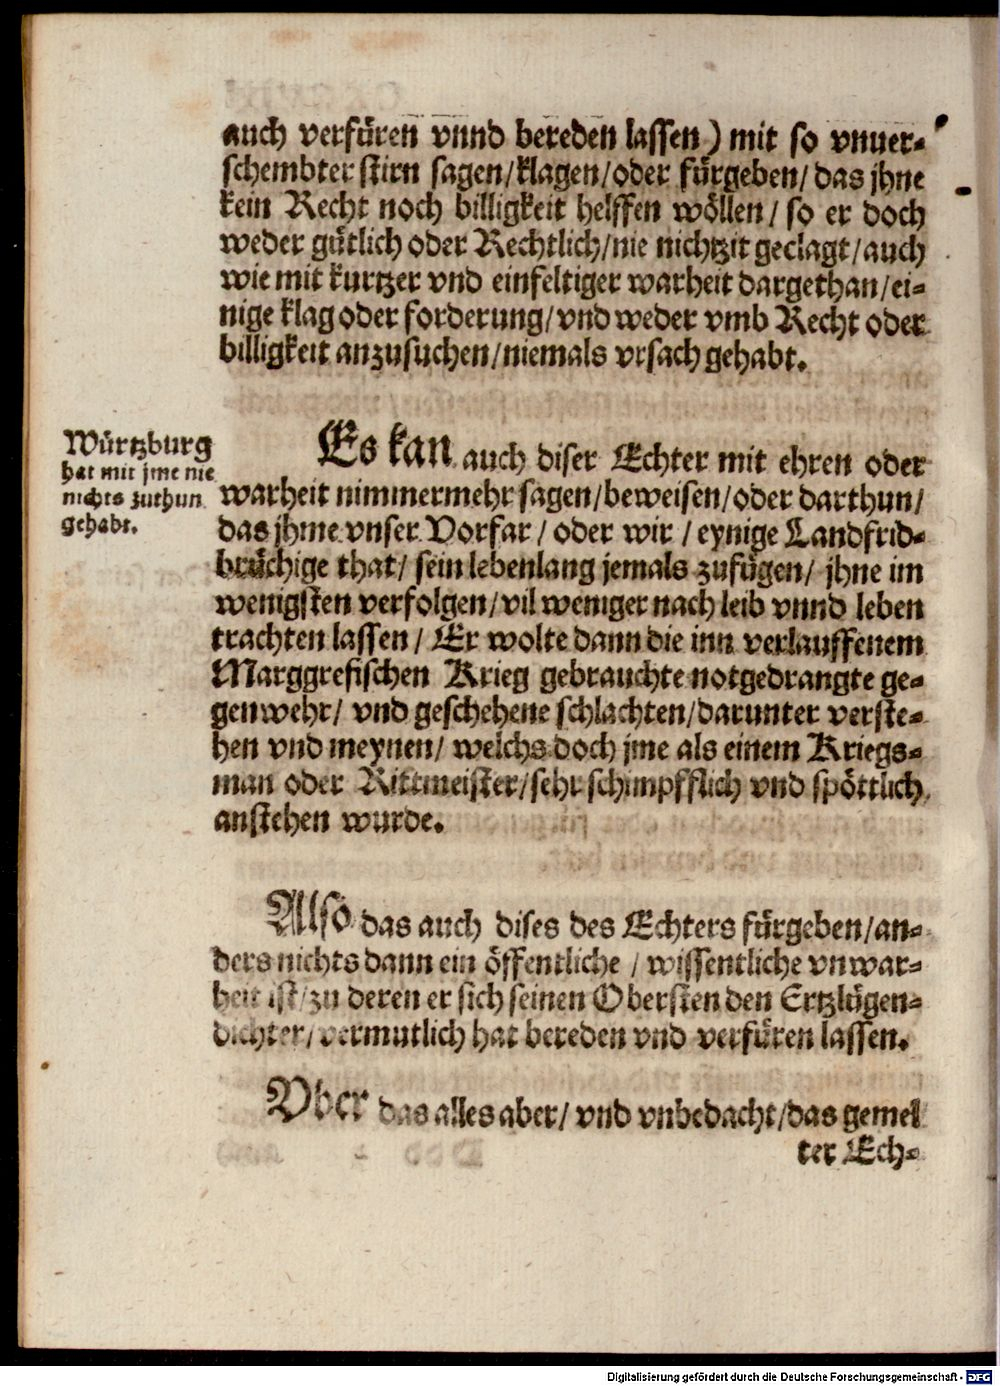 auch verfüren vnnd bereden lassen) mit so vnuer-
schembter stirn sagen/klagen/oder fürgeben/das jhne
kein Recht noch billigkeit helffen wöllen/so er doch
weder gütlich oder Rechtlich/nie nichtzit geclagt/auch
wie mit kurtzer vnd einfeltiger warheit dargethan/ei-
nige klag oder forderung/vnd weder vmb Recht oder
billigkeit anzusuchen/niemals vrsach gehabt.
Würtzburg
hat mit jme nie
nichts zuthun
gehabt.
Es kan auch diser Echter mit ehren oder
warheit nimmermehr sagen/beweisen/oder darthun/
das jhme vnser Vorfar/oder wir/eynige Landfrid-
brüchige that/sein lebenlang jemals zufügen/jhne im
wenigsten verfolgen/vil weniger nach leib vnnd leben
trachten lassen/Er wolte dann die inn verlauffenem
Marggrefischen Krieg gebrauchte notgedrangte ge-
genwehr/vnd geschehene schlachten/darunter verste-
hen vnd meynen/welchs doch jme als einem Kriegs-
man oder Rittmeister/sehr schimpfflich vnd spöttlich
anstehen wurde.
Also das auch dises des Echters fürgeben/an-
ders nichts dann ein öffentliche/wissentliche vnwar-
heit ist/zu deren er sich seinen Obersten den Ertzlügen-
dichter/vermutlich hat bereden vnd verfüren lassen.
Vber das alles aber/vnd vnbedacht/das gemel
ter Ech-
Digitalisierung gefördert durch die Deutsche Forschungsgemeinschaft - DFG